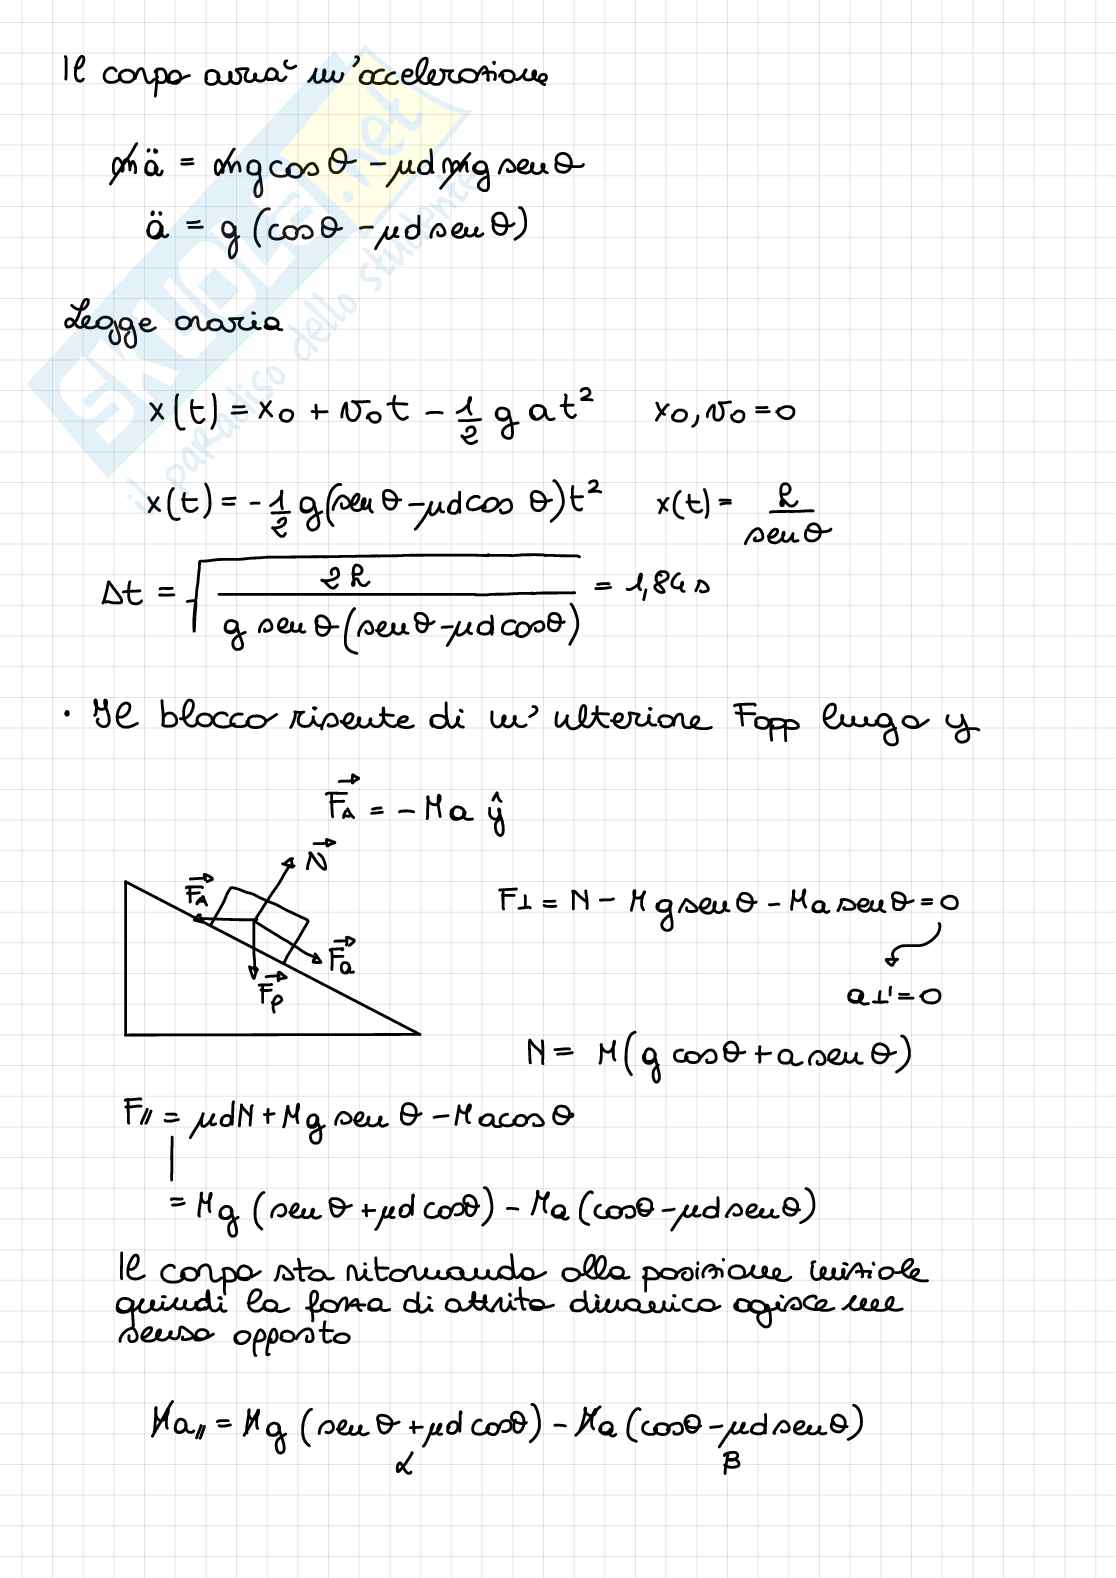 Il corpo avrà un'accelerazione
mä = mg cos θ - μd mg sen θ
ä = g (cos θ - μd sen θ)
Legge oraria
x(t) = x₀ + v₀t - 1/2 g a t² x₀, v₀ = 0
x(t) = - 1/2 g (sen θ - μd cos θ)t² x(t) = h / sen θ
Δt = √(2h / (g sen θ (sen θ - μd cos θ))) = 1,84 s
· Il blocco risente di un' ulteriore Fapp lungo y
F⃗A = - Ma ŷ
N⃗
F⃗A
F⃗a
F⃗p
F⊥ = N - Mg sen θ - Ma sen θ = 0
a⊥' = 0
N = M(g cos θ + a sen θ)
F// = μd N + Mg sen θ - Ma cos θ
= Mg (sen θ + μd cos θ) - Ma (cos θ - μd sen θ)
Il corpo sta ritornando alla posizione iniziale
quindi la forza di attrito dinamico agisce nel
senso opposto
Ma// = Mg (sen θ + μd cos θ) - Ma (cos θ - μd sen θ)
α β
SKUOLA.net
il paradiso dello studente